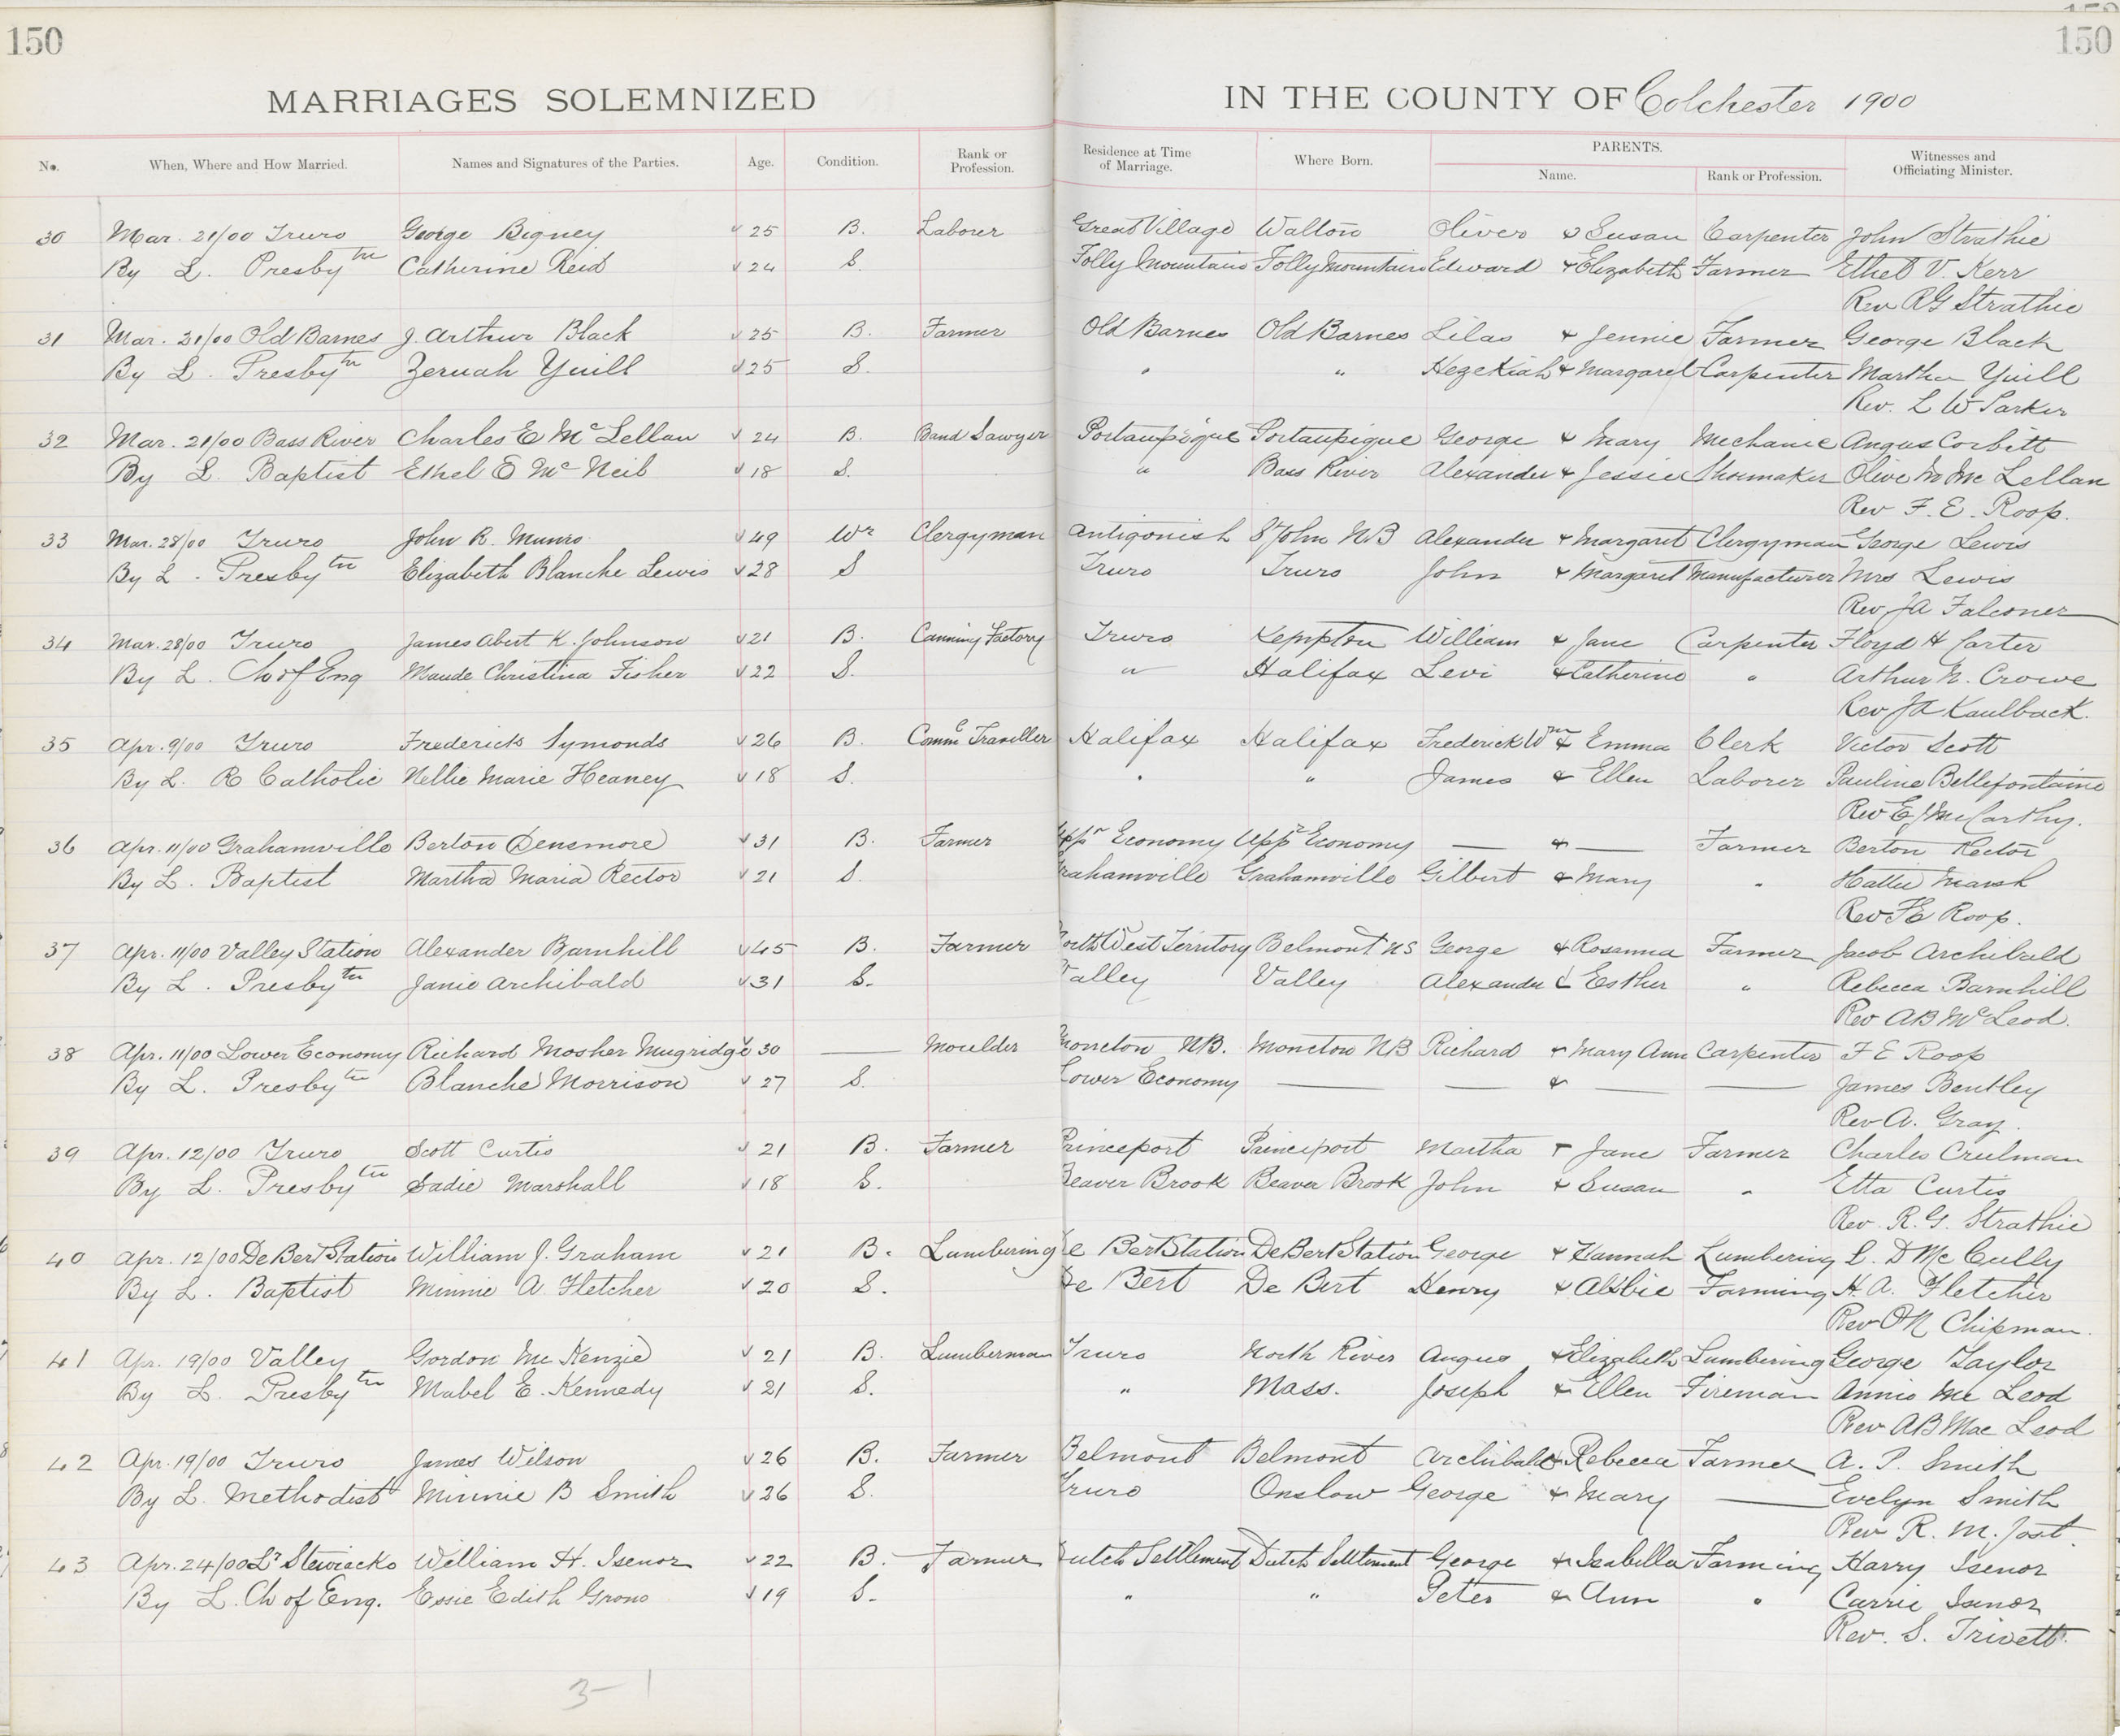 150
150
MARRIAGES SOLEMNIZED IN THE COUNTY OF Colchester 1900
No. When, Where and How Married. Names and Signatures of the Parties. Age. Condition. Rank or Profession. Residence at Time of Marriage. Where Born. PARENTS. Name. Rank or Profession. Witnesses and Officiating Minister.
30 Mar. 21/00 Truro George Bigney 25 B. Laborer Great Village Walton Oliver & Susan Carpenter John Strathie
By L. Presbytn Catherine Reid 24 S. Folly Mountain Folly Mountain Edward & Elizabeth Farmer Ethel V. Kerr
Rev RG Strathie
31 Mar. 21/00 Old Barnes J. Arthur Black 25 B. Farmer Old Barnes Old Barnes Silas & Jennie Farmer George Black
By L. Presbytn Zeruah Yuill 25 S. " " Hezekiah & Margaret Carpenter Martha Yuill
Rev. L W Parker
32 Mar. 21/00 Bass River Charles E McLellan 24 B. Band Sawyer Portaupique Portaupique George & Mary Mechanic Angus Corbett
By L. Baptist Ethel E McNeil 18 S. " Bass River Alexander & Jessie Shoemaker Olive Mc Lellan
Rev F. E. Roop.
33 Mar. 28/00 Truro John R. Munro 49 Wr Clergyman Antigonish St John NB Alexander & Margaret Clergyman George Lewis
By L. Presbytn Elizabeth Blanche Lewis 28 S Truro Truro John & Margaret Manufacturer Mrs Lewis
Rev JA Falconer
34 Mar. 28/00 Truro James Abert K. Johnson 21 B. Canning Factory Truro Kempton William & Jane Carpenter Floyd H Carter
By L. Ch of Eng Maude Christina Fisher 22 S. " Halifax Levi & Catherine " Arthur N. Crowe
Rev JA Kaulback.
35 Apr. 9/00 Truro Frederick Symonds 26 B. Comml Traveller Halifax Halifax Frederick Wm & Emma Clerk Victor Scott
By L. R Catholic Nellie Marie Heaney 18 S. " " James & Ellen Laborer Pauline Bellefontaine
Rev E J McCarthy.
36 Apr. 11/00 Grahamville Berton Densmore 31 B. Farmer Uppr Economy Uppr Economy — & — Farmer Berton Rector
By L. Baptist Martha Maria Rector 21 S. Grahamville Grahamville Gilbert & Mary " Hattie Marsh
Rev FE Roop.
37 Apr. 11/00 Valley Station Alexander Barnhill 45 B. Farmer North West Territory Belmont NS George & Rosanna Farmer Jacob Archibald
By L. Presbytn Janie Archibald 31 S. Valley Valley Alexander & Esther " Rebecca Barnhill
Rev AB McLeod.
38 Apr. 11/00 Lower Economy Richard Mosher Mugridge 30 — Moulder Moncton NB. Moncton NB Richard & Mary Ann Carpenter F E Roop
By L. Presbytn Blanche Morrison 27 S. Lower Economy — — & — — James Bentley
Rev A. Gray.
39 Apr. 12/00 Truro Scott Curtis 21 B. Farmer Princeport Princeport Martha & Jane Farmer Charles Creelman
By L. Presbytn Sadie Marshall 18 S. Beaver Brook Beaver Brook John & Susan " Etta Curtis
Rev. R. G. Strathie
40 Apr. 12/00 De Bert Station William J. Graham 21 B. Lumbering De Bert Station De Bert Station George & Hannah Lumbering L. D McCully
By L. Baptist Minnie A Fletcher 20 S. De Bert De Bert Henry & Abbie Farming H. A. Fletcher
Rev ON Chipman.
41 Apr. 19/00 Valley Gordon Mc Kenzie 21 B. Lumberman Truro North River Angus & Elizabeth Lumbering George Taylor
By L. Presbytn Mabel E. Kennedy 21 S. " Mass. Joseph & Ellen Fireman Annie Mc Leod
Rev AB Mac Leod
42 Apr. 19/00 Truro James Wilson 26 B. Farmer Belmont Belmont Archibald & Rebecca Farmer A. P. Smith
By L. Methodist Minnie B Smith 26 S. Truro Onslow George & Mary — Evelyn Smith
Rev R. M. Jost.
43 Apr. 24/00 Lr Stewiacke William H. Isenor 22 B. Farmer Dutch Settlement Dutch Settlement George & Isabella Farming Harry Isenor
By L. Ch of Eng. Essie Edith Grono 19 S. " " Peter & Ann " Carrie Isenor
Rev. S. Trivett.
3-1